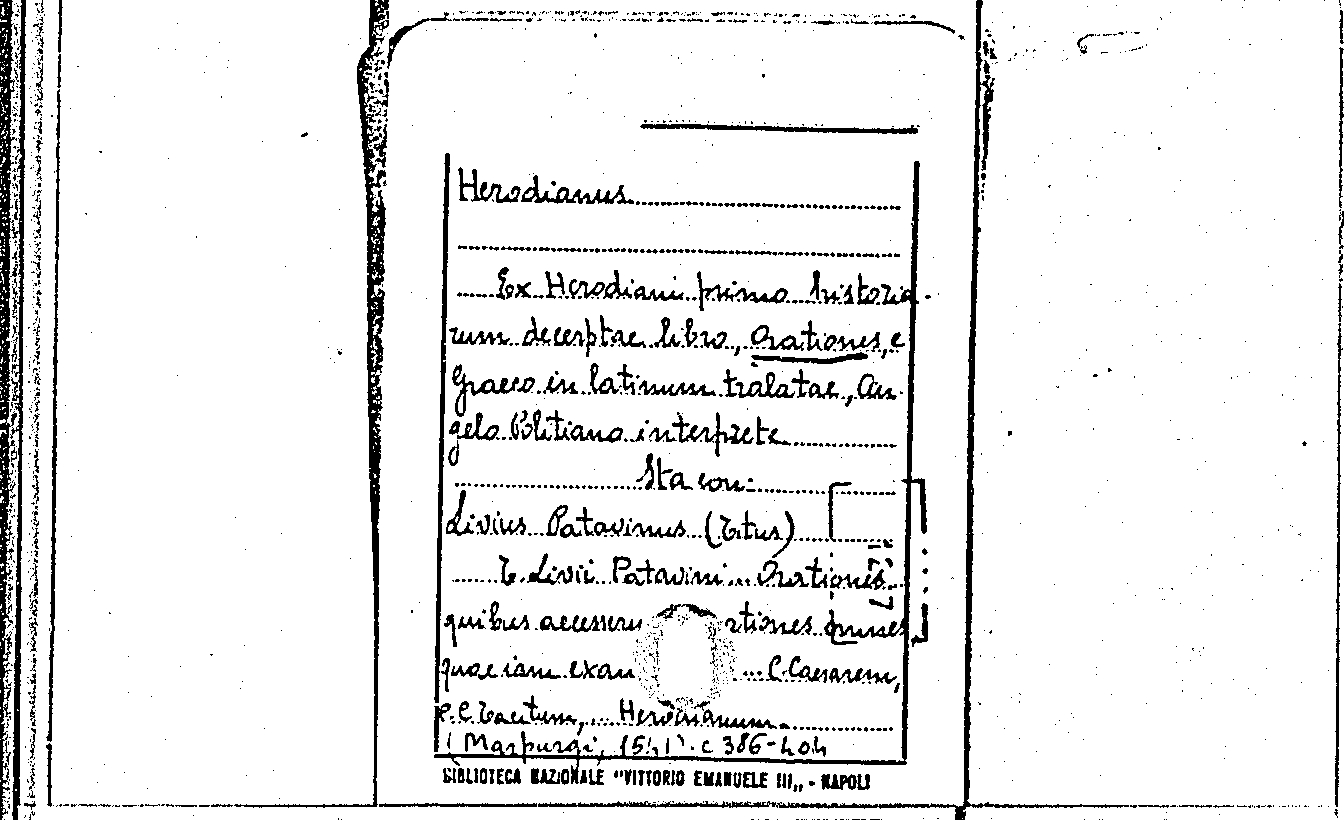 Herodianus
Ex Herodiani primo historia-
rum decerptae libro, Orationes, e
Graeco in latinum tralatae, An-
gelo Politiano interprete
Sta con:
Livius Patavinus (Titus)
T. Livii Patavini... Orationes
quibus accesseru rationes omnes
quae iam exau ... C. Caesarem,
P. C. Tacitum, ... Herodianum.
(Marpurgi, 1541). c 386-404
BIBLIOTECA NAZIONALE "VITTORIO EMANUELE III„ - NAPOLI